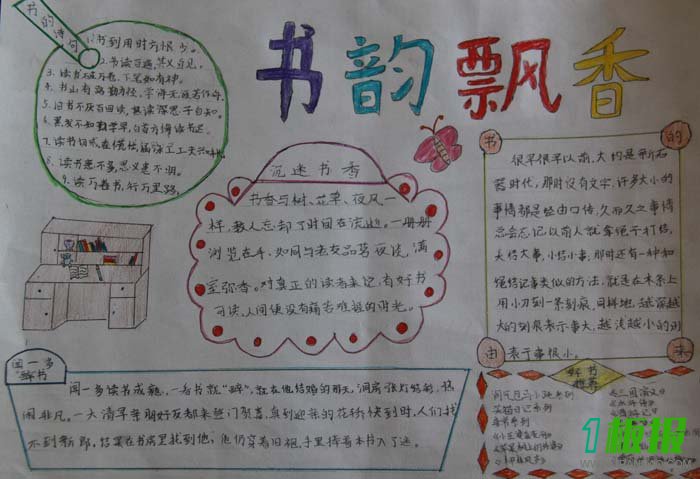 书韵飘香
书的诗句
1. 书到用时方恨少。
2. 书读百遍，其义自见。
3. 读书破万卷，下笔如有神。
4. 书山有路勤为径，学海无涯苦作舟。
5. 旧书不厌百回读，熟读深思子自知。
6. 黑发不知勤学早，白首方悔读书迟。
8. 读书患不多，思义患不明。
9. 读万卷书，行万里路。
沉迷书香
书香与树、花草、夜风一
样，教人忘却了时间在流逝。一册册
浏览在手，如同与老友品茗夜谈，满
室弥香。对真正的读者来说，有好书
可读，人间便没有痛苦难挨的时光。
书的由来
很早很早以前，大约是新石
器时代，那时没有文字，许多大小的
事情都是经由口传，久而久之事情
总会忘记，以前人就拿绳子打结，
大结大事，小结小事，那时还有一种和
绳结记事类似的方法，就是在木条上
用小刀刻一条刻痕，同样地，越深越
大的刻痕表示事大，越浅越小的则
表示事很小。
闻一多
"醉书"
闻一多读书成瘾，一看书就"醉"，就在他结婚的那天，洞房张灯结彩，热
闹非凡。一大清早亲朋好友都来登门贺喜，直到迎亲的花轿快到时，人们找
不到新郎，结果在书房里找到他，他仍穿着旧袍，手里捧着本书入了迷。
好书
推荐
笑猫日记系列
《三国演义》
1板报